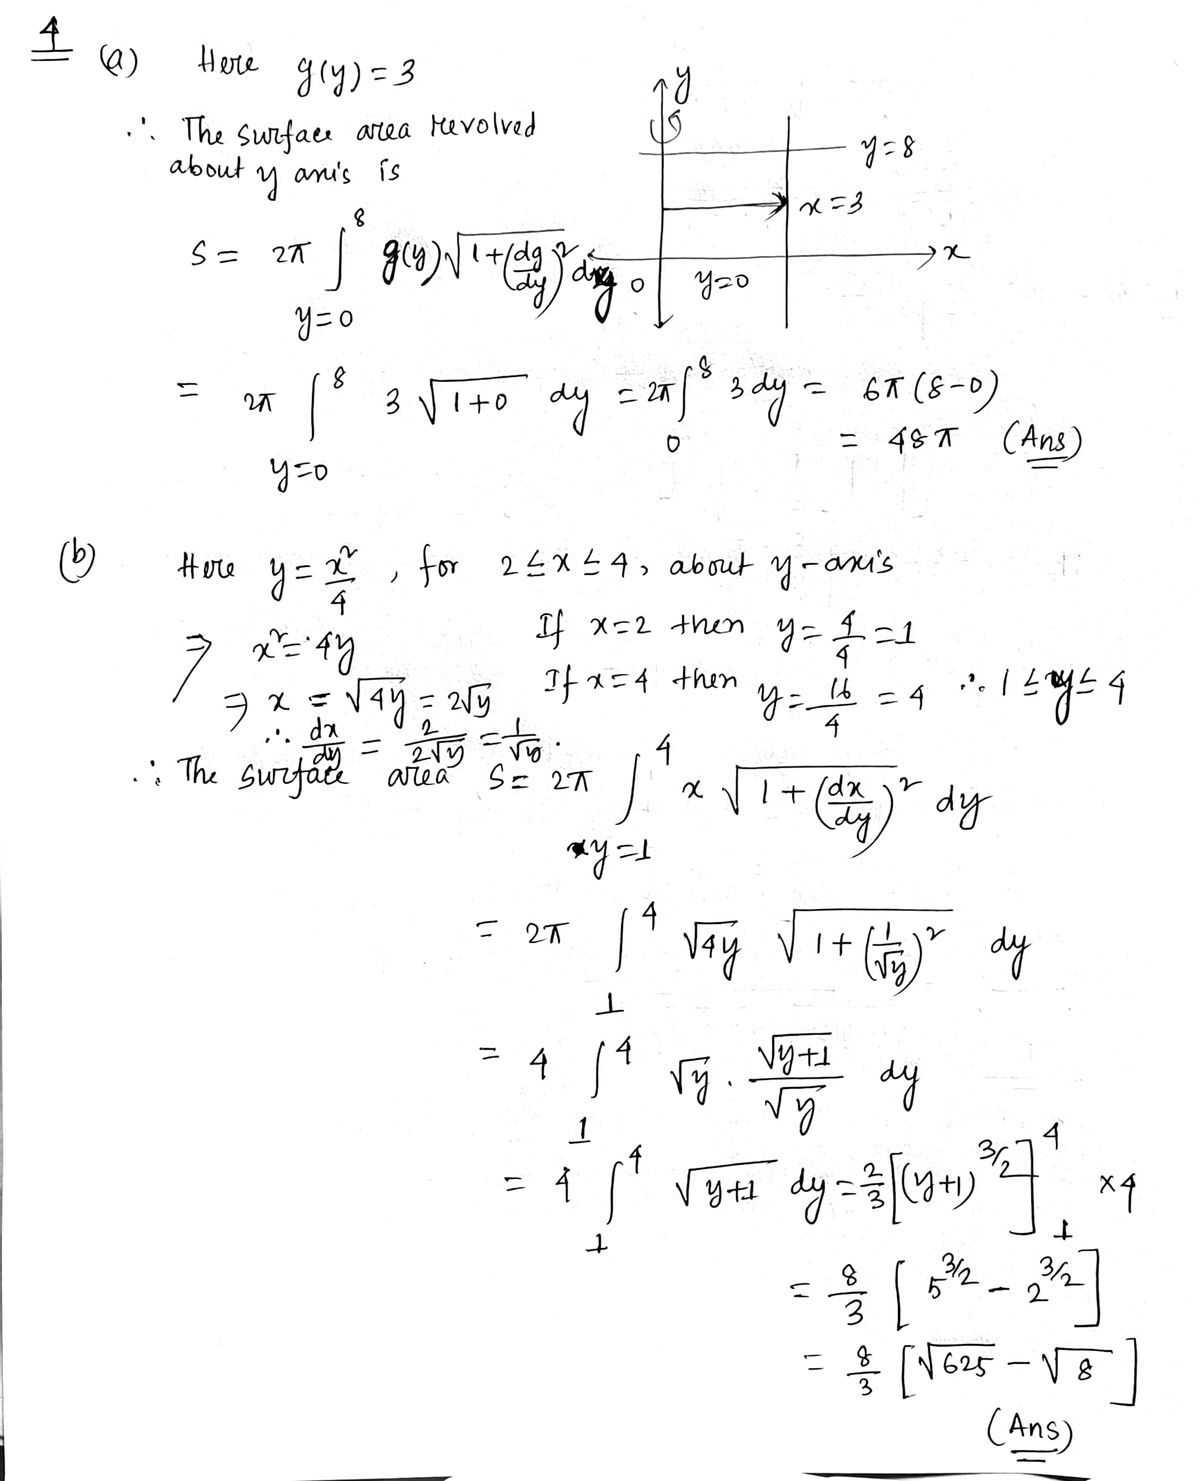 4
(a) Here g(y) = 3
∴ The surface area revolved
about y axis is
S = 2π ∫_{y=0}^{8} g(y) √(1+(dg/dy)²) dy
y
y=8
x=3
x
0
y=0
= 2π ∫_{y=0}^{8} 3 √(1+0) dy = 2π ∫_{0}^{8} 3 dy = 6π (8-0)
= 48π (Ans)
(b) Here y = x²/4 , for 2 ≤ x ≤ 4, about y-axis
If x=2 then y = 4/4 = 1
⇒ x² = 4y
If x=4 then y = 16/4 = 4 ∴ 1 ≤ y ≤ 4
⇒ x = √4y = 2√y
∴ dx/dy = 2/(2√y) = 1/√y .
∴ The surface area S = 2π ∫_{y=1}^{4} x √(1+(dx/dy)²) dy
= 2π ∫_{1}^{4} √4y √(1+(1/√y)²) dy
= 4 ∫_{1}^{4} √y . √(y+1)/√y dy
= 4 ∫_{1}^{4} √(y+1) dy = 2/3 [(y+1)^{3/2}]_{1}^{4} ×4
= 8/3 [5^{3/2} - 2^{3/2}]
= 8/3 [√625 - √8]
(Ans)